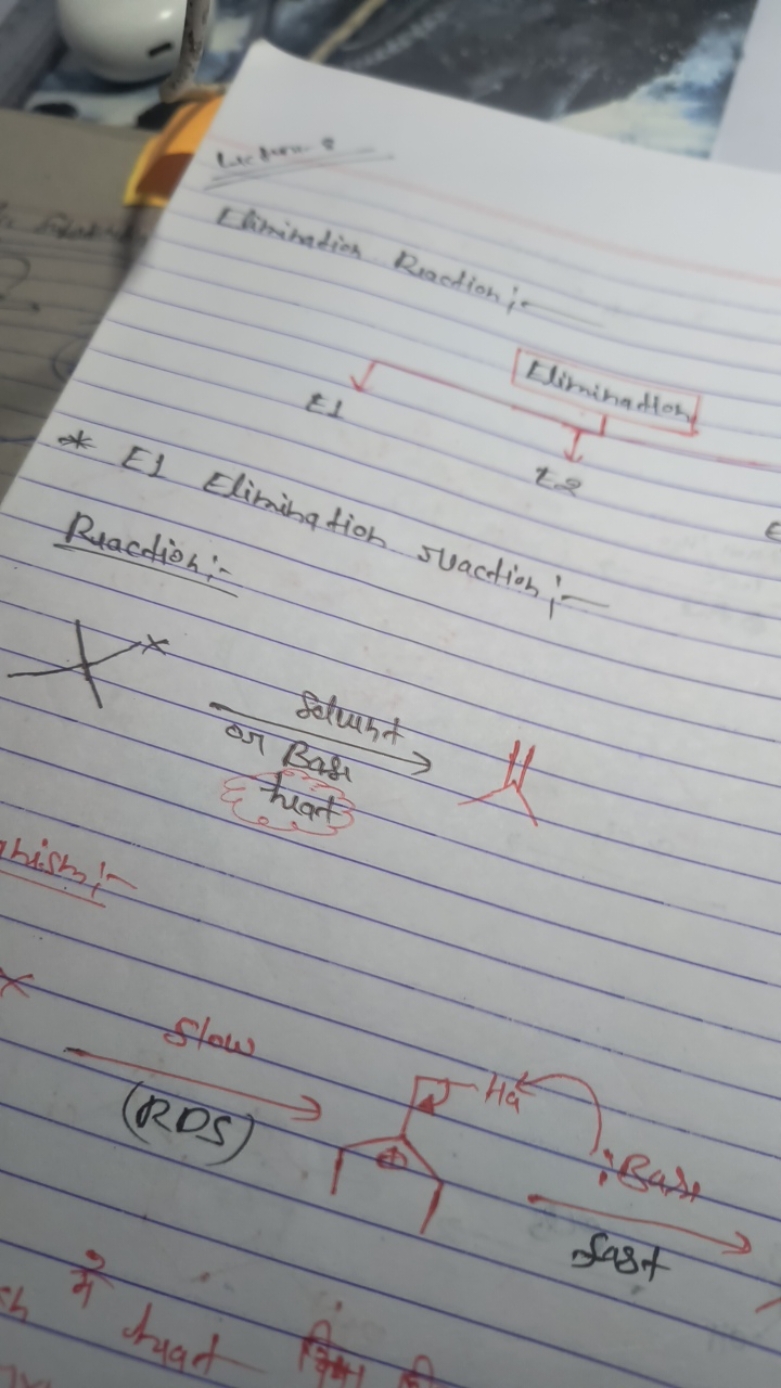 Lecture
Elimination Reaction :-
Elimination
E1
E2
* E1 Elimination reaction :-
Reaction :-
x
Solvent
or Base
heat
x
Slow
(RDS)
Hα
⊕
:Base
fast
में heat